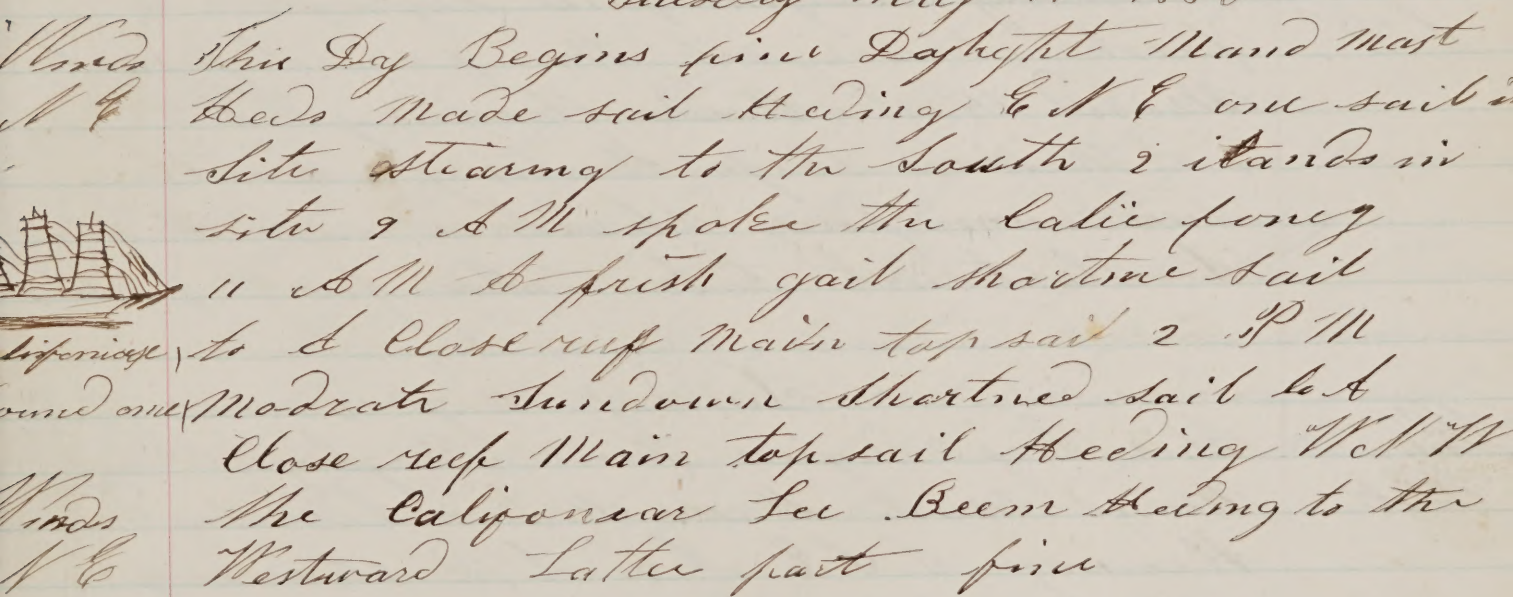 Winds This Day Begins fine Daylight Mand mast
N E Heds made sail Heding E N E one sail in
site stearing to the South 2 ilands in
site 9 A M spoke the
11 A M A fresh gail shortme sail
to A Close reef Main top sail 2 P M
Modrate Sundown Shortned sail to A
Close reef Main top sail Heding W N W
Winds the Lee Beem Heding to the
N E Westward Latter part fine